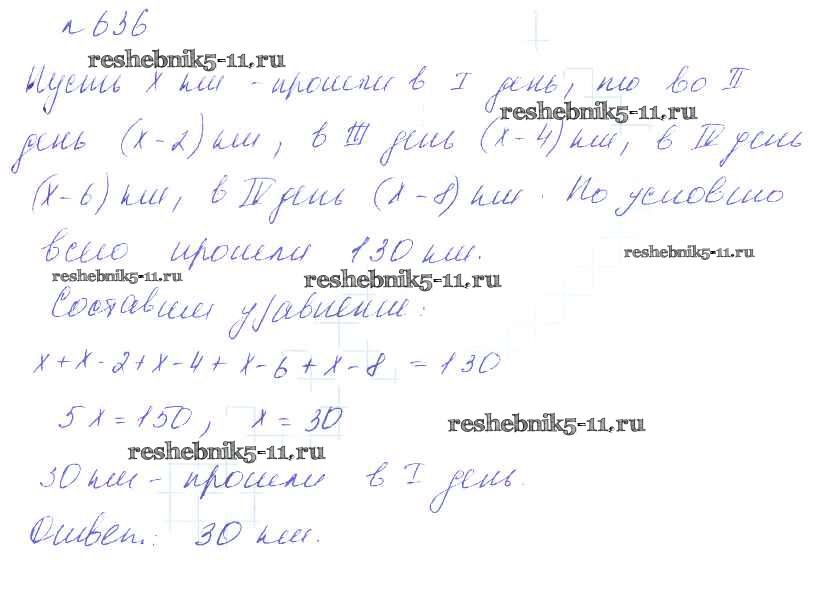 № 636
reshebnik5-11.ru
Пусть х км - прошли в I день, то во II
reshebnik5-11.ru
день (х-2) км, в III день (х-4) км, в IV день
(х-6) км, в IV день (х-8) км. По условию
всего прошли 130 км.
reshebnik5-11.ru
reshebnik5-11.ru
reshebnik5-11.ru
Составим уравнение:
х + х - 2 + х - 4 + х - 6 + х - 8 = 130
5х = 150, х = 30
reshebnik5-11.ru
reshebnik5-11.ru
30 км - прошли в I день.
Ответ: 30 км.